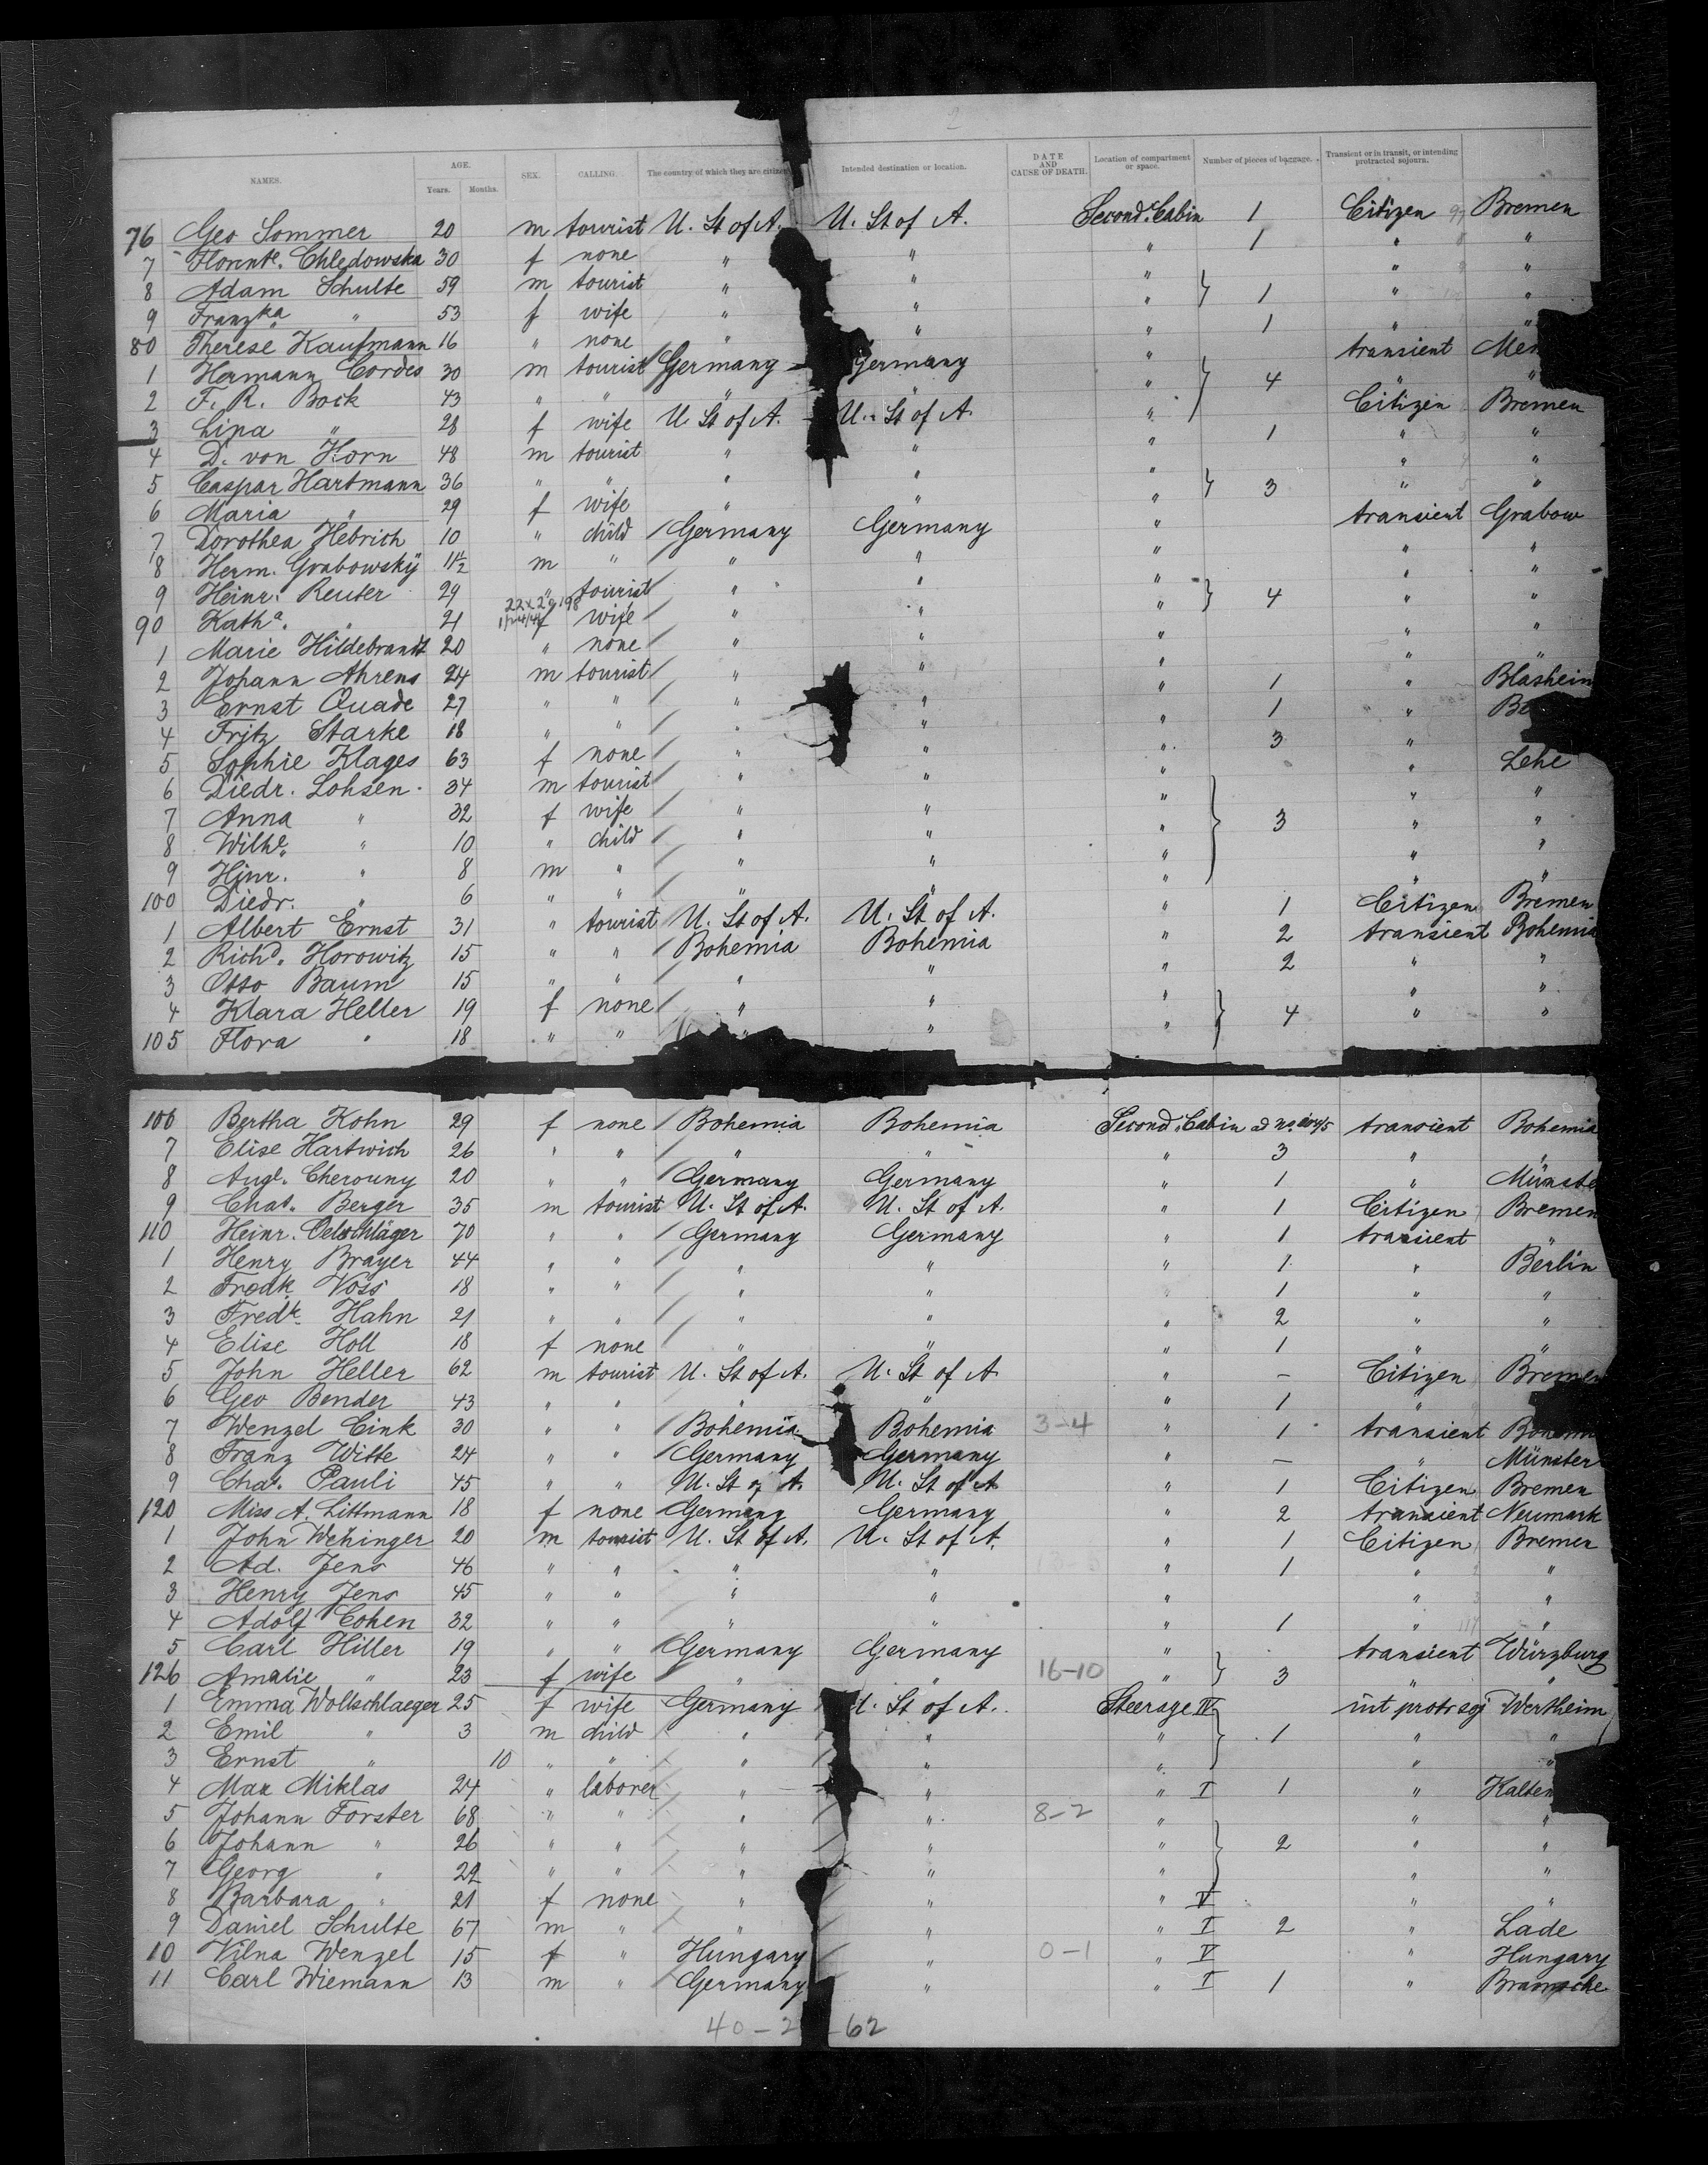 2
NAMES. AGE. Years. Months. SEX. CALLING. The country of which they are citizens Intended destination or location. DATE AND CAUSE OF DEATH. Location of compartment or space. Number of pieces of baggage. Transient or in transit, or intending protracted sojourn.
76 Geo Sommer 20 m tourist U. St of A. U. St of A. Second Cabin 1 Citizen Bremen
7 Florent. Chledowska 30 f none " " " 1 " "
8 Adam Schulte 59 m tourist " " " } 1 " "
9 Franzka " 53 f wife " " " " "
80 Therese Kaufmann 16 " none " " " 1 " "
1 Hermann Cordes 30 m tourist Germany Germany " transient
2 F. R. Bock 43 " " " " " } 4 " "
3 Lina " 28 f wife U St of A. U. St of A. " Citizen Bremen
4 D. von Horn 48 m tourist " " " 1 " "
5 Caspar Hartmann 36 " " " " " } 3 " "
6 Maria " 29 f wife " " " " "
7 Dorothea Hebrich 10 " child Germany Germany " transient Grabow
8 Herm. Grabowsky 11½ m " " " " " "
9 Heinr. Reuter 29 " tourist " " " } 4 " "
22x29198
90 Katha. " 21 f wife " " " " "
1 Marie Hildebrandt 20 " none " " " " "
2 Johann Ahrens 24 m tourist " " " " "
3 Ernst Quade 27 " " " " " 1 " Blashein
4 Fritz Starke 18 " " " " " 1 "
5 Sophie Klages 63 f none " " " 3 "
6 Diedr. Lohsen 34 m tourist " " " " Lehe
7 Anna " 32 f wife " " " } 3 " "
8 Wilhe. " 10 " child " " " " "
9 Hinr. " 8 m " " " " " "
100 Diedr. " 6 " " " " " " "
1 Albert Ernst 31 " tourist U. St of A. U. St of A. " 1 Citizen Bremen
2 Richd. Horowitz 15 " " Bohemia Bohemia " 2 transient Bohemia
3 Otto Baum 15 " " " " " 2 " "
4 Klara Heller 19 f none " " " } 4 " "
105 Flora " 18 " " " " " " "
106 Bertha Kohn 29 f none Bohemia Bohemia Second Cabin transient Bohemia
7 Elise Hartwich 26 " " " " " 3 " "
8 Augl. Cherouny 20 " " Germany Germany " 1 " Münste
9 Chas. Berger 35 m tourist U. St of A. U. St of A. " 1 Citizen Bremen
110 Heinr. Oelschläger 70 " " Germany Germany " 1 transient "
1 Henry Brayer 44 " " " " " 1 " Berlin
2 Fredk. Voss 18 " " " " " 1 " "
3 Fredk. Hahn 21 " " " " " 2 " "
4 Elise Holl 18 f none " " " 1 " "
5 John Heller 62 m tourist U. St of A. U. St of A. " - Citizen Bremen
6 Geo Bender 43 " " " " " 1 "
7 Wenzel Cink 30 " " Bohemia Bohemia 3-4 " 1 transient Bohemia
8 Franz Witte 24 " " Germany Germany " - " Münster
9 Chas. Pauli 45 " " U. St of A. U. St of A. " 1 Citizen Bremen
120 Miss A. Littmann 18 f none Germany Germany " 2 transient Neumark
1 John Wehinger 20 m tourist U. St of A. U. St of A. " 1 Citizen Bremen
2 Ad. Jens 46 " " " " " 1 " "
3 Henry Jens 45 " " " " " " "
4 Adolf Cohen 32 " " " " " 1 " "
5 Carl Hiller 19 " " Germany Germany " transient Würzburg
126 Amalie " 23 f wife " " 16-10 " } 3 " "
1 Emma Wollschlaeger 25 f wife Germany U. St of A. Steerage IV int protr soj Wertheim
2 Emil " 3 m child " " " } 1 " "
3 Ernst " 10 " " " " " " "
4 Max Miklas 24 " laborer " " " I 1 " Kalten
5 Johann Forster 68 " " " " 8-2 " " "
6 Johann " 26 " " " " " } 2 " "
7 Georg " 22 " " " " " " "
8 Barbara " 21 f none " " " V " "
9 Daniel Schulte 67 m " " " " I 2 " Lade
10 Vilna Wenzel 15 f " Hungary " 0-1 " V " Hungary
11 Carl Wiemann 13 m " Germany " " I 1 " Bramsche
40-2 62